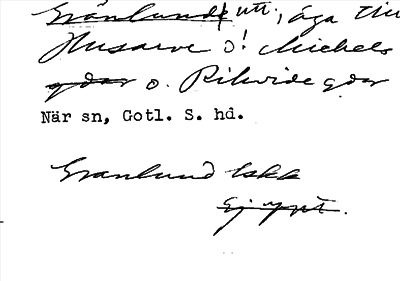 Grönlund utt, äga till
Husarve o! Michels
gdar o. Rikvide gdar
När sn, Gotl. S. hd.
Granlund
Ej uppt.